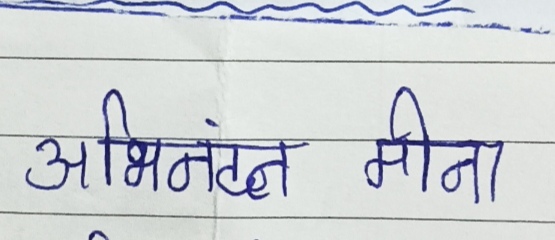 अभिनंदन मीना